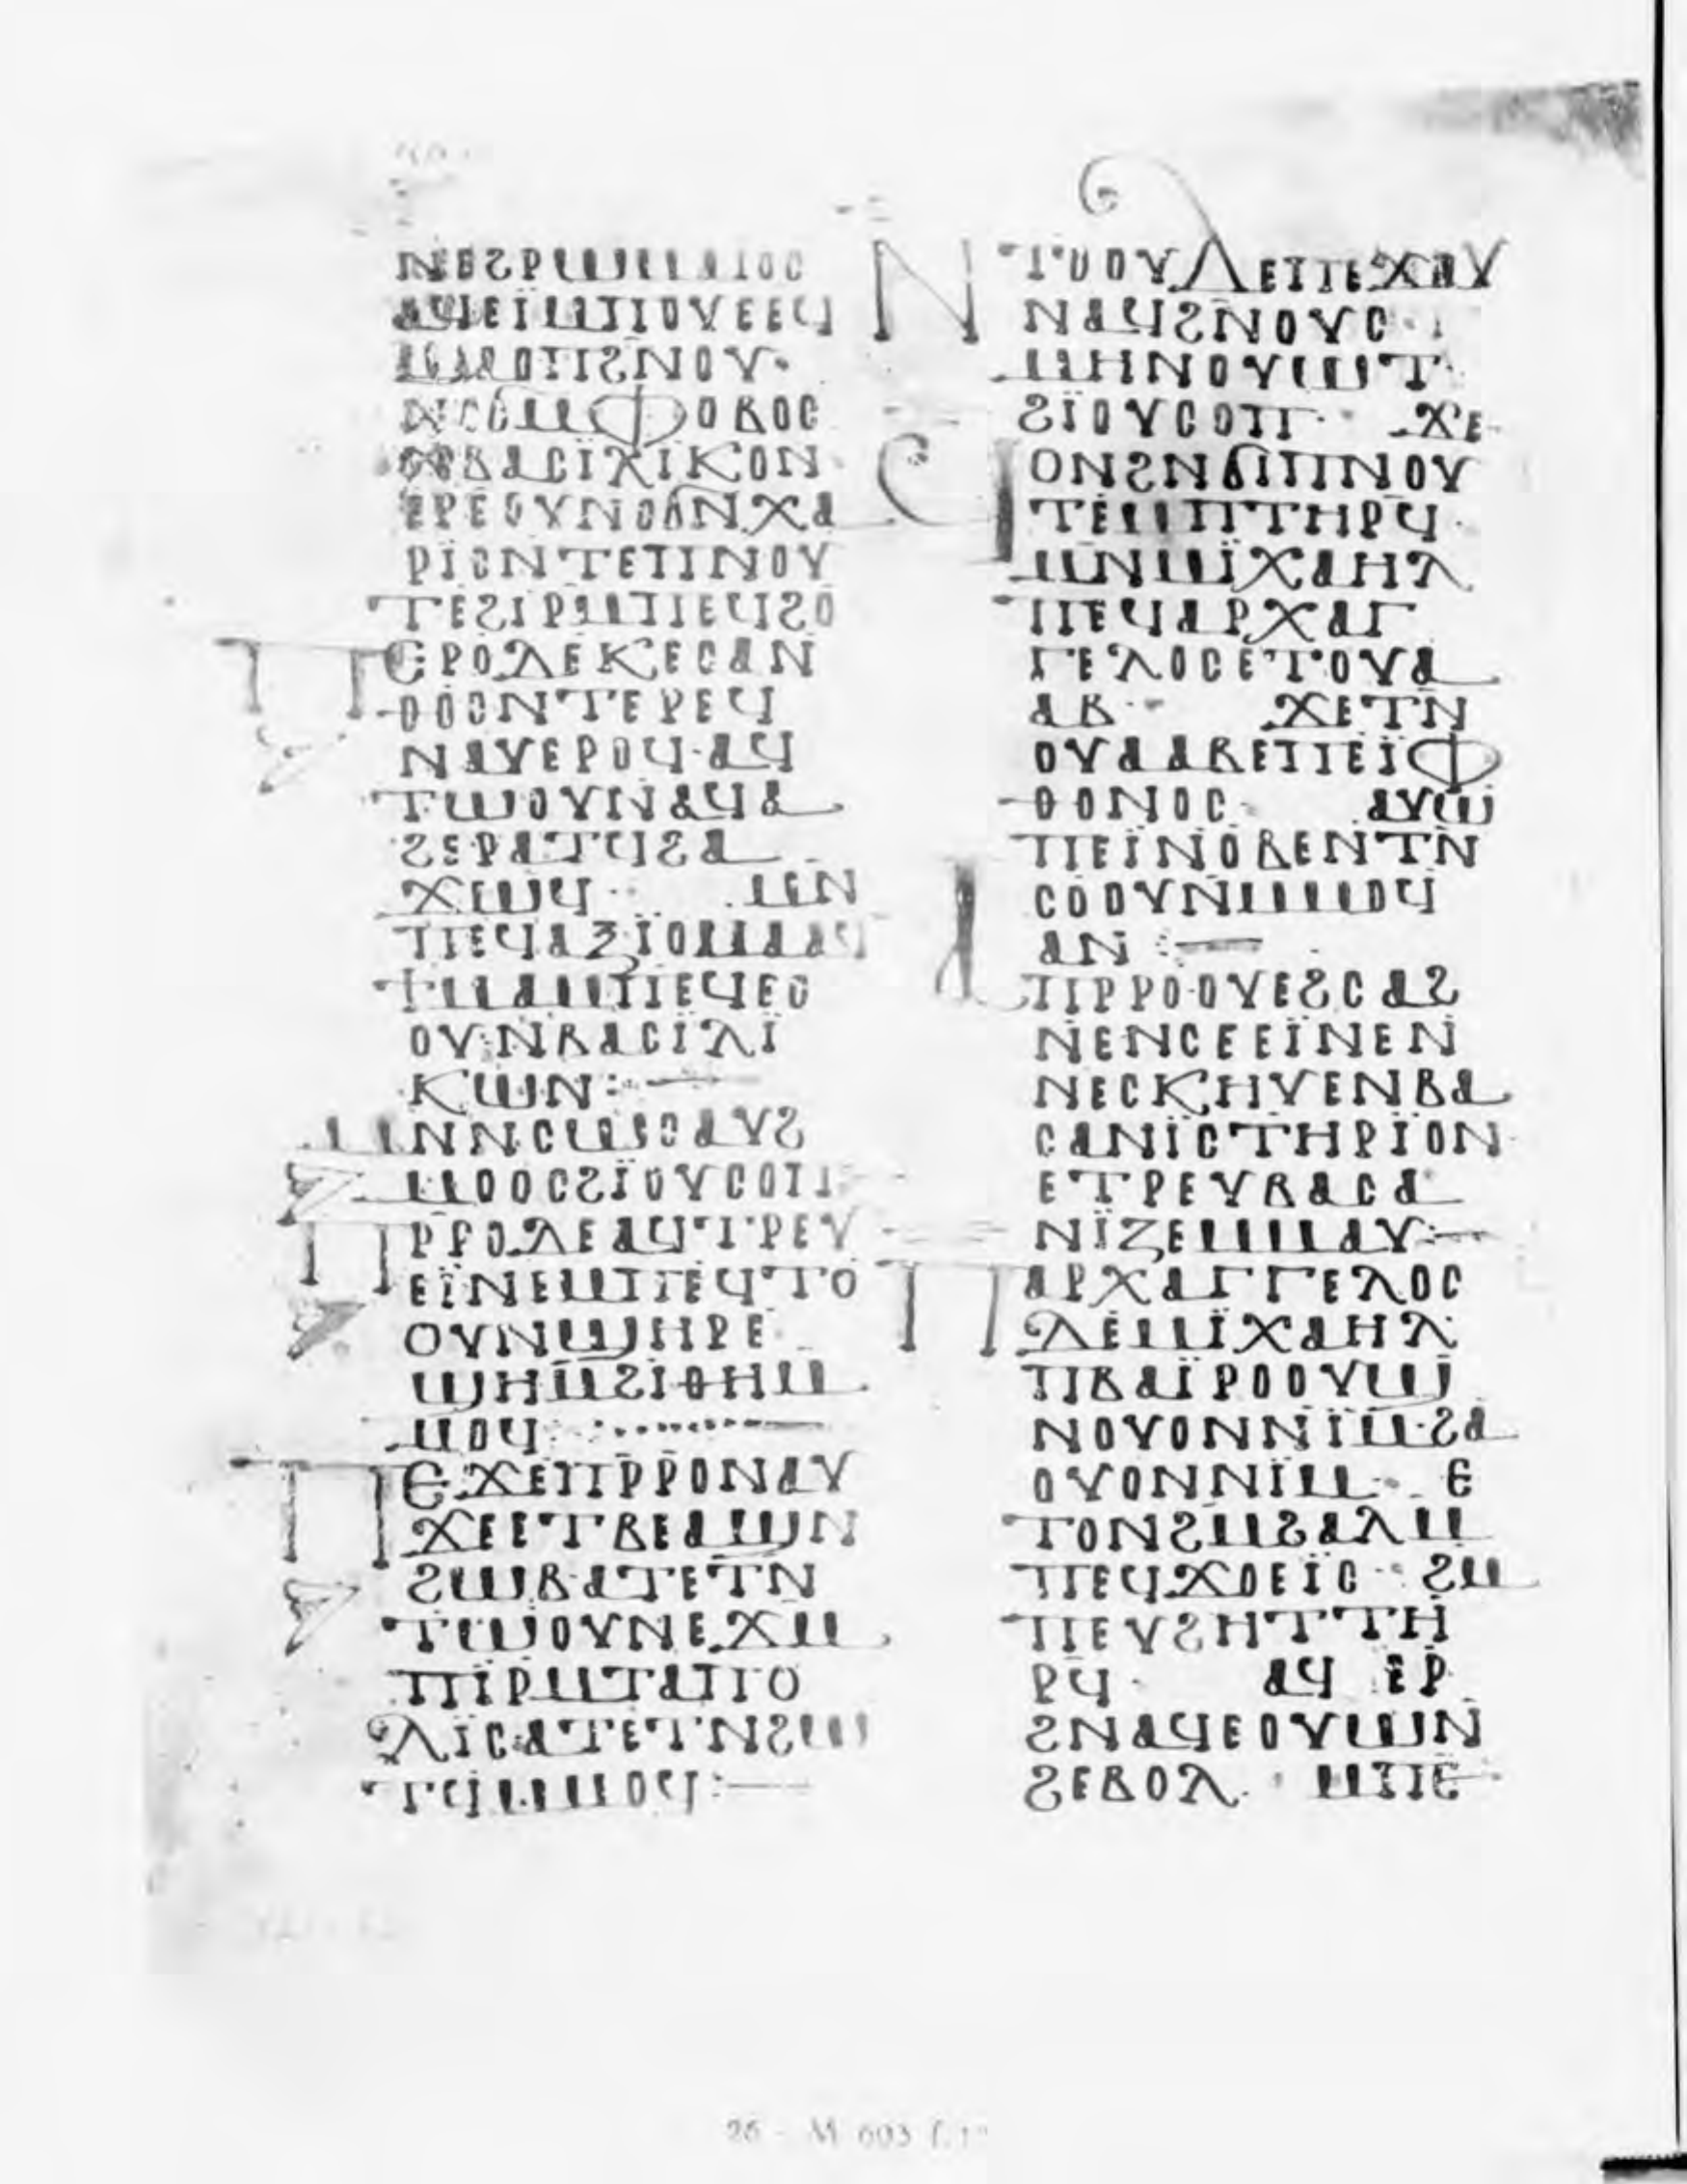 ⲛⲉϩⲣⲱⲙⲁⲓⲟⲥ
ⲁϥⲉⲓ ⲙⲡⲟⲩⲉⲉϥ
ϩⲛⲟⲩ
ⲛⲟϭ ⲙⲫⲟⲃⲟⲥ
ⲙⲃⲁⲥⲓⲗⲓⲕⲟⲛ
ⲉⲣⲉⲟⲩⲛⲟϭ ⲛⲭⲁ
ⲣⲓⲥ ⲛⲧⲉ ⲡⲛⲟⲩ
ⲧⲉ ϩⲓⲣⲙ ⲡⲉϥϩⲟ
Ⲡⲉⲣⲟ ⲇⲉ ⲕⲉⲥⲁⲛ
ⲑⲟⲥ ⲛⲧⲉⲣⲉϥ
ⲛⲁⲩ ⲉⲣⲟϥ· ⲁϥ
ⲧⲱⲟⲩⲛ ⲁϥⲁ
ϩⲉⲣⲁⲧϥ ϩⲁ
ϫⲱϥ· ⲙⲛ
ⲡⲉϥⲁⲝⲓⲟⲙⲁ ⲁϥ
ϯ ⲙⲁ ⲙⲡⲉϥⲉⲟ
ⲟⲩ ⲛⲃⲁⲥⲓⲗⲓ
ⲕⲱⲛ:—
Ⲙⲛⲛⲥⲱⲥ ⲁⲩϩ
ⲙⲟⲟⲥ ϩⲓⲟⲩⲥⲟⲡ·
Ⲡⲣⲣⲟ ⲇⲉ ⲁϥⲧⲣⲉⲩ
ⲉⲓⲛⲉ ⲙⲡⲉϥⲧⲟ
ⲟⲩ ⲛϣⲏⲣⲉ
ϣⲏⲙ ϩⲓⲑⲏ ⲙ
ⲙⲟϥ:—
Ⲡⲉϫⲉ ⲡⲣⲣⲟ ⲛⲁⲩ
ϫⲉ ⲉⲧⲃⲉ ⲁϣ ⲛ
ϩⲱⲃ ⲁⲧⲉⲧⲛ
ⲧⲱⲟⲩⲛ ⲉϫⲙ
ⲡⲓⲣⲙⲧⲁⲡⲟ
ⲗⲓⲥ ⲁⲧⲉⲧⲛϩⲱ
ⲧϥ ⲙⲙⲟϥ:—
Ⲛⲧⲟⲟⲩ ⲇⲉ ⲡⲉϫⲁⲩ
ⲛⲁϥ ϩⲛ ⲟⲩⲥ
ⲙⲏ ⲛⲟⲩⲱⲧ
ϩⲓⲟⲩⲥⲟⲡ· ϫⲉ
Ϥⲟⲛϩ ⲛϭⲓ ⲡⲛⲟⲩ
ⲧⲉ ⲙⲡⲧⲏⲣϥ
ⲙⲛ ⲙⲓⲭⲁⲏⲗ
ⲡⲉϥⲁⲣⲭⲁⲅ
ⲅⲉⲗⲟⲥ ⲉⲧⲟⲩⲁ
ⲁⲃ· ϫⲉ ⲧⲛ
ⲟⲩⲁⲁⲃ ⲉⲡⲉⲓⲫ
ⲑⲟⲛⲟⲥ· ⲁⲩⲱ
ⲡⲉⲓⲛⲟⲃⲉ ⲛⲧⲛ
ⲥⲟⲟⲩⲛ ⲙⲙⲟϥ
ⲁⲛ:—
Ⲁⲡⲣⲣⲟ ⲟⲩⲉϩⲥⲁϩ
ⲛⲉ ⲛⲥⲉⲉⲓⲛⲉ ⲛ
ⲛⲉⲥⲕⲏⲩⲉ ⲛⲃⲁ
ⲥⲁⲛⲓⲥⲧⲏⲣⲓⲟⲛ
ⲉⲧⲣⲉⲩⲃⲁⲥⲁ
ⲛⲓⲍⲉ ⲙⲙⲁⲩ:—
Ⲡⲁⲣⲭⲁⲅⲅⲉⲗⲟⲥ
ⲇⲉ ⲙⲓⲭⲁⲏⲗ
ⲡⲃⲁⲓⲣⲟⲟⲩϣ
ⲛⲟⲩⲟⲛ ⲛⲓⲙ· ϩⲁ
ⲟⲩⲟⲛ ⲛⲓⲙ· ⲉ
ⲧⲟⲛϩ ⲙϩⲁⲗ ⲙ
ⲡⲉϥϫⲟⲉⲓⲥ· ϩⲙ
ⲡⲉⲩϩⲏⲧ ⲧⲏ
ⲣϥ· ⲁϥ ⲉⲣ
ϩⲛⲁϥ ⲉⲟⲩⲱⲛ
ϩ ⲉⲃⲟⲗ· ⲙⲡⲉ